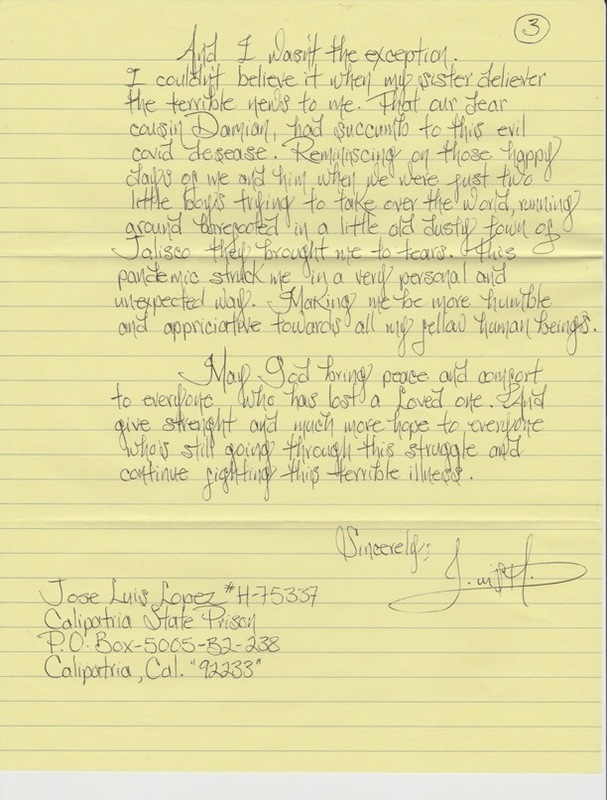 3
And I wasn't the exception.
I couldn't believe it when my sister deliever
the terrible news to me. That our dear
cousin Damian, had succumb to this evil
covid desease. Reminiscing on those happy
days of me and him when we were just two
little boys trying to take over the world, running
around barefooted in a little old dusty town of
Jalisco they brought me to tears. This
pandemic struck me in a very personal and
unexpected way. Making me be more humble
and appriciative towards all my fellow human beings.
May God bring peace and comfort
to everyone who has lost a loved one. And
give strenght and much more hope to everyone
who's still going through this struggle and
continue fighting this terrible illness.
Sincerely;
Jose Luis Lopez #H-75337
Calipatria State Prison
P.O. Box-5005-B2-238
Calipatria, Cal. "92233"